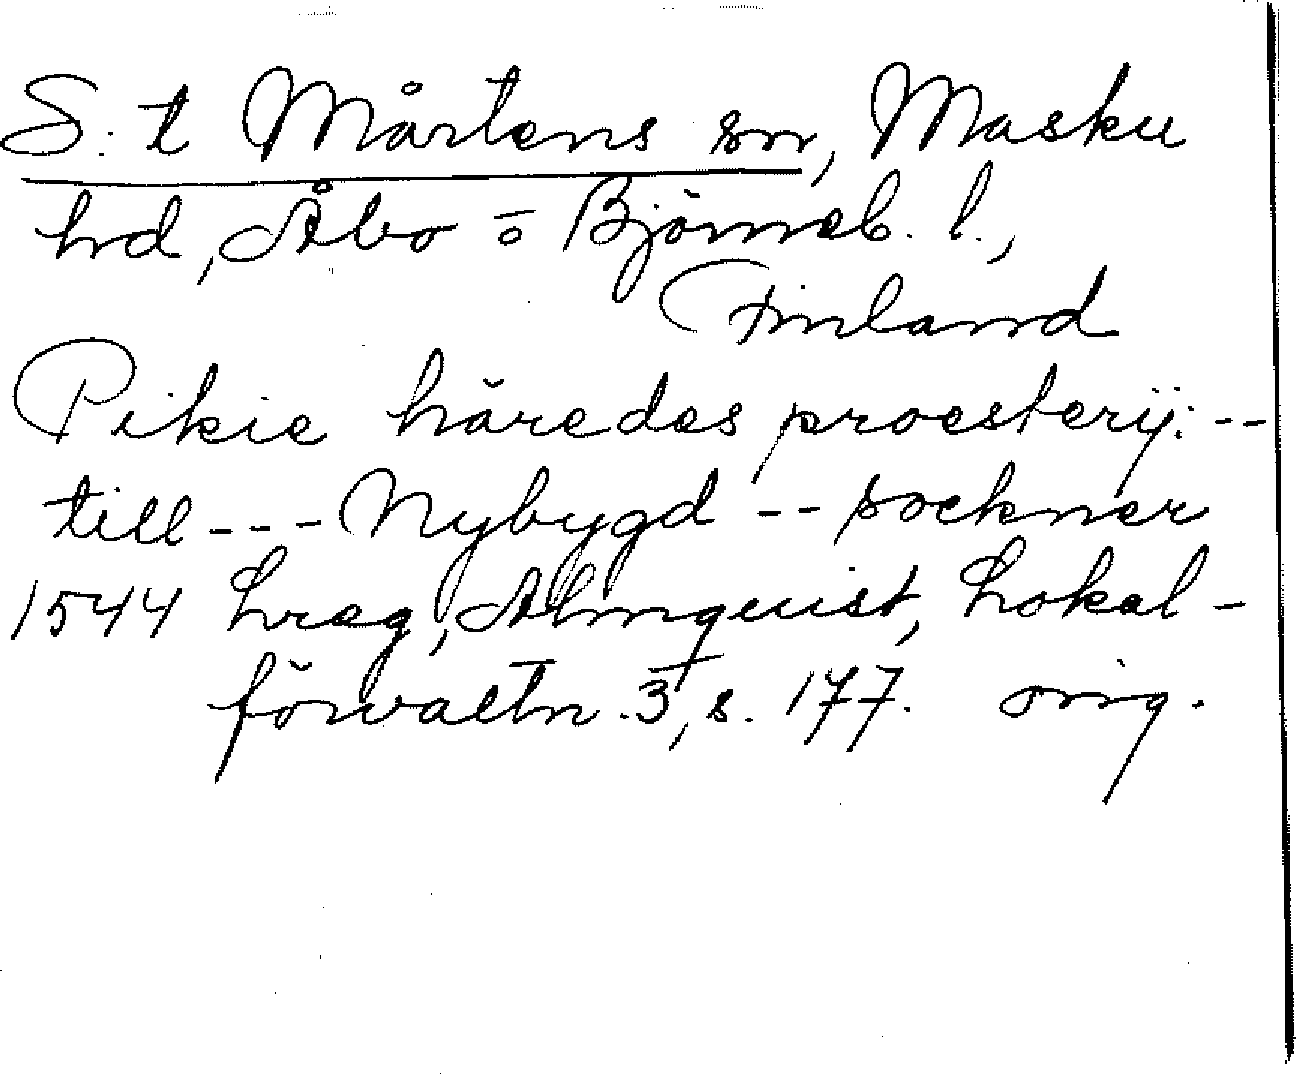 S:t Mårtens sn, Masku
hd, Åbo o Björneb. l.,
Finland
Pikie häredes proesterij: --
till --- Nybygd -- sockner
1544 Lreg, Almquist, Lokal-
förvaltn. 3, s. 177. orig.